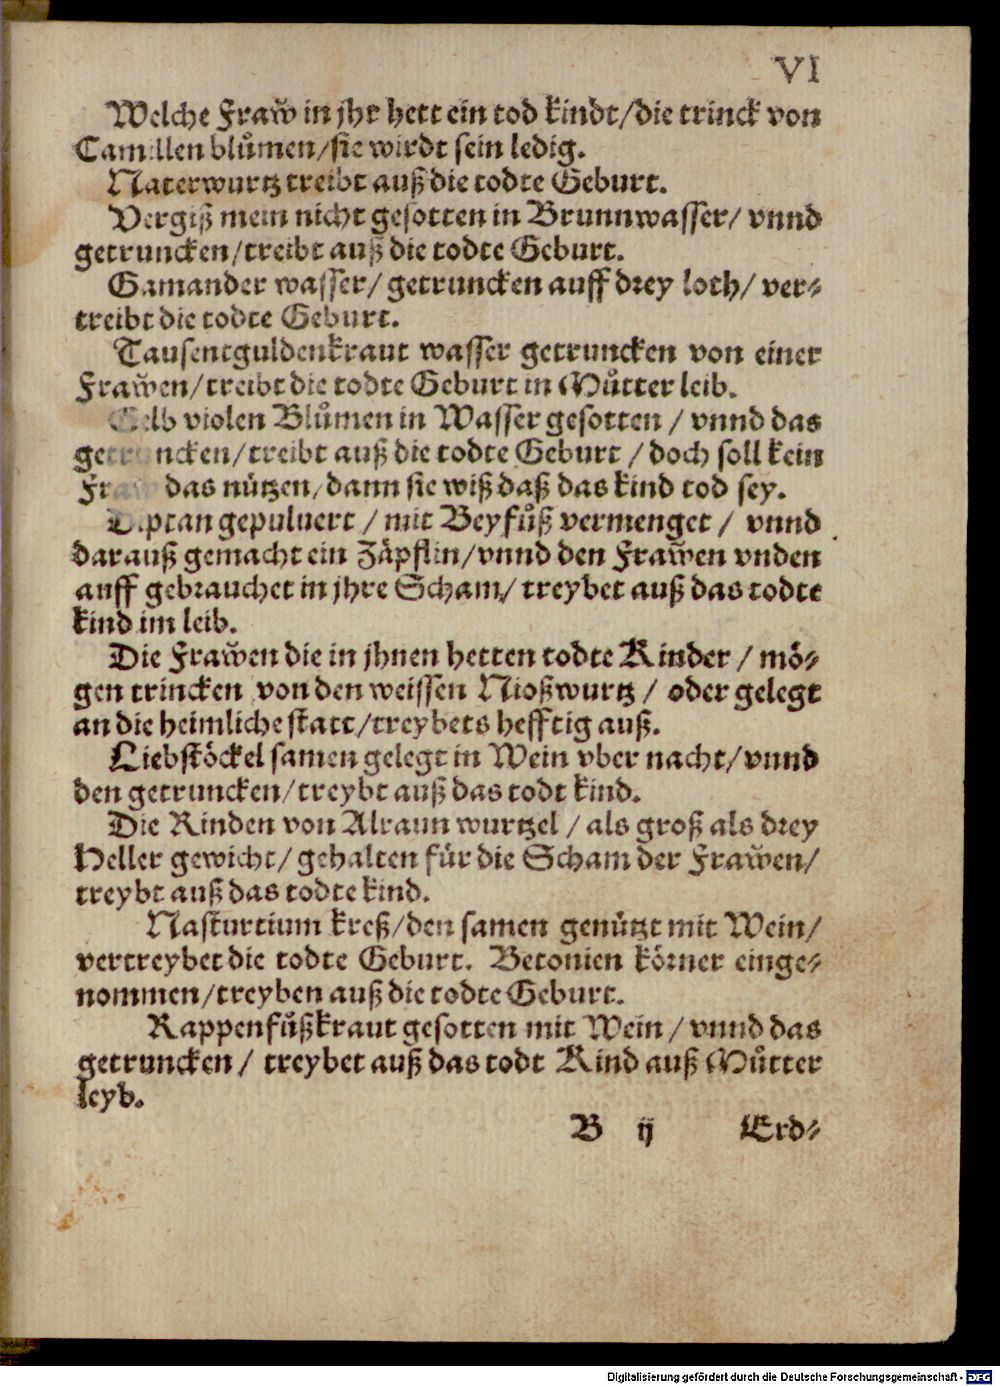 VI
Welche Fraw̃ in jhr hett ein tod kindt/die trinck von
Camillen blůmen/sie wirdt sein ledig.
Naterwurtz treibt auß die todte Geburt.
Vergiß mein nicht gesotten in Brunnwasser/ vnnd
getruncken/treibt auß die todte Geburt.
Gamander wasser/ getruncken auff drey loth/ ver⸗
treibt die todte Geburt.
Tausentguldenkraut wasser getruncken von einer
Fraw̃en/treibt die todte Geburt in Můtter leib.
Gelb violen Blůmen in Wasser gesotten / vnnd das
getruncken/treibt auß die todte Geburt / doch soll kein
Fraw das nützen/dann sie wiß daß das kind tod sey.
Diptan gepuluert / mit Beyfůß vermenget / vnnd
darauß gemacht ein Zäpflin/vnnd den Fraw̃en vnden
auff gebrauchet in jhre Scham/ treybet auß das todte
kind im leib.
Die Fraw̃en die in jhnen hetten todte Kinder / mö⸗
gen trincken von den weissen Nioßwurtz / oder gelegt
an die heimliche statt/treybets hefftig auß.
Liebstöckel samen gelegt in Wein vber nacht/vnnd
den getruncken/treybt auß das todt kind.
Die Rinden von Alraun wurtzel / als groß als drey
Heller gewicht/ gehalten für die Scham der Fraw̃en/
treybt auß das todte kind.
Nasturtium kreß/den samen genützt mit Wein/
vertreybet die todte Geburt. Betonien körner einge⸗
nommen/treyben auß die todte Geburt.
Rappenfůßkraut gesotten mit Wein / vnnd das
getruncken / treybet auß das todt Kind auß Můtter
leyb.
B ij Erd⸗
Digitalisierung gefördert durch die Deutsche Forschungsgemeinschaft - DFG